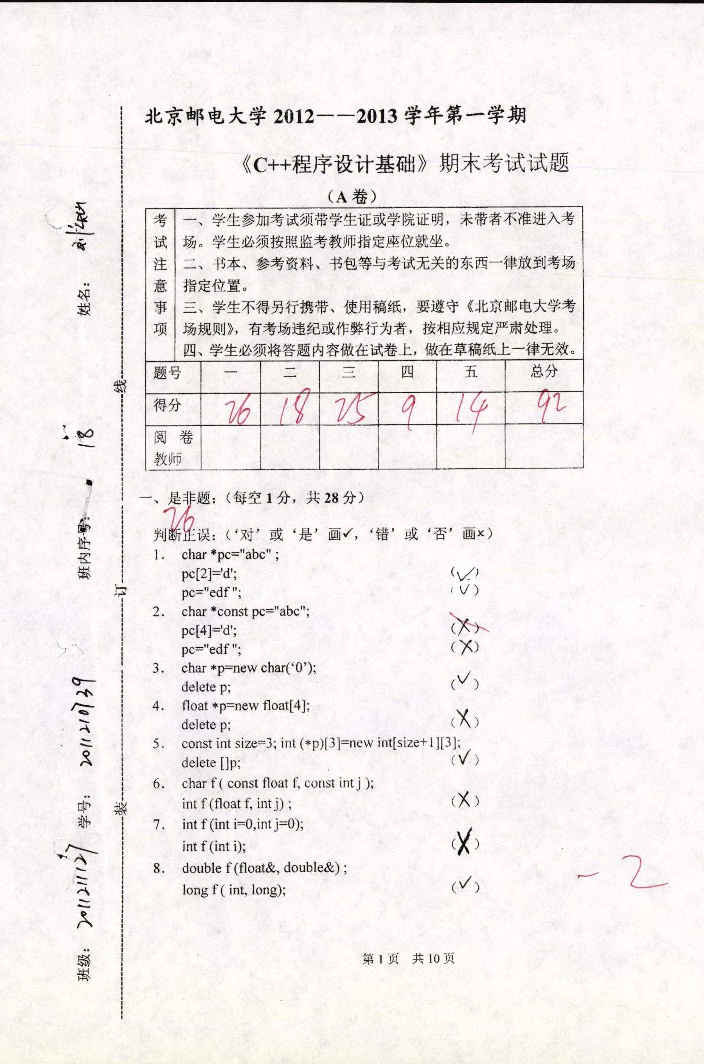 北京邮电大学 2012——2013 学年第一学期
《C++程序设计基础》期末考试试题
（A 卷）
考试注意事项
一、学生参加考试须带学生证或学院证明，未带者不准进入考
场。学生必须按照监考教师指定座位就坐。
二、书本、参考资料、书包等与考试无关的东西一律放到考场
指定位置。
三、学生不得另行携带、使用稿纸，要遵守《北京邮电大学考
场规则》，有考场违纪或作弊行为者，按相应规定严肃处理。
四、学生必须将答题内容做在试卷上，做在草稿纸上一律无效。
题号 一 二 三 四 五 总分
得分 26 18 25 9 14 92
阅 卷
教师
一、是非题：（每空 1 分，共 28 分）
26
判断正误：（‘对’或‘是’画✓，‘错’或‘否’画×）
1. char *pc="abc" ;
pc[2]='d'; (✓)
pc="edf"; (✓)
2. char *const pc="abc";
pc[4]='d'; (X)
pc="edf"; (X)
3. char *p=new char(‘0’);
delete p; (✓)
4. float *p=new float[4];
delete p; (X)
5. const int size=3; int (*p)[3]=new int[size+1][3];
delete []p; (✓)
6. char f ( const float f, const int j );
int f (float f, int j) ; (X)
7. int f (int i=0,int j=0);
int f (int i); (X)
8. double f (float&, double&) ;
long f ( int, long); (✓)
-2
第 1 页 共 10 页
姓名：
班内序号： 18
学号： 2011210739
班级： 2011211127
线
订
装